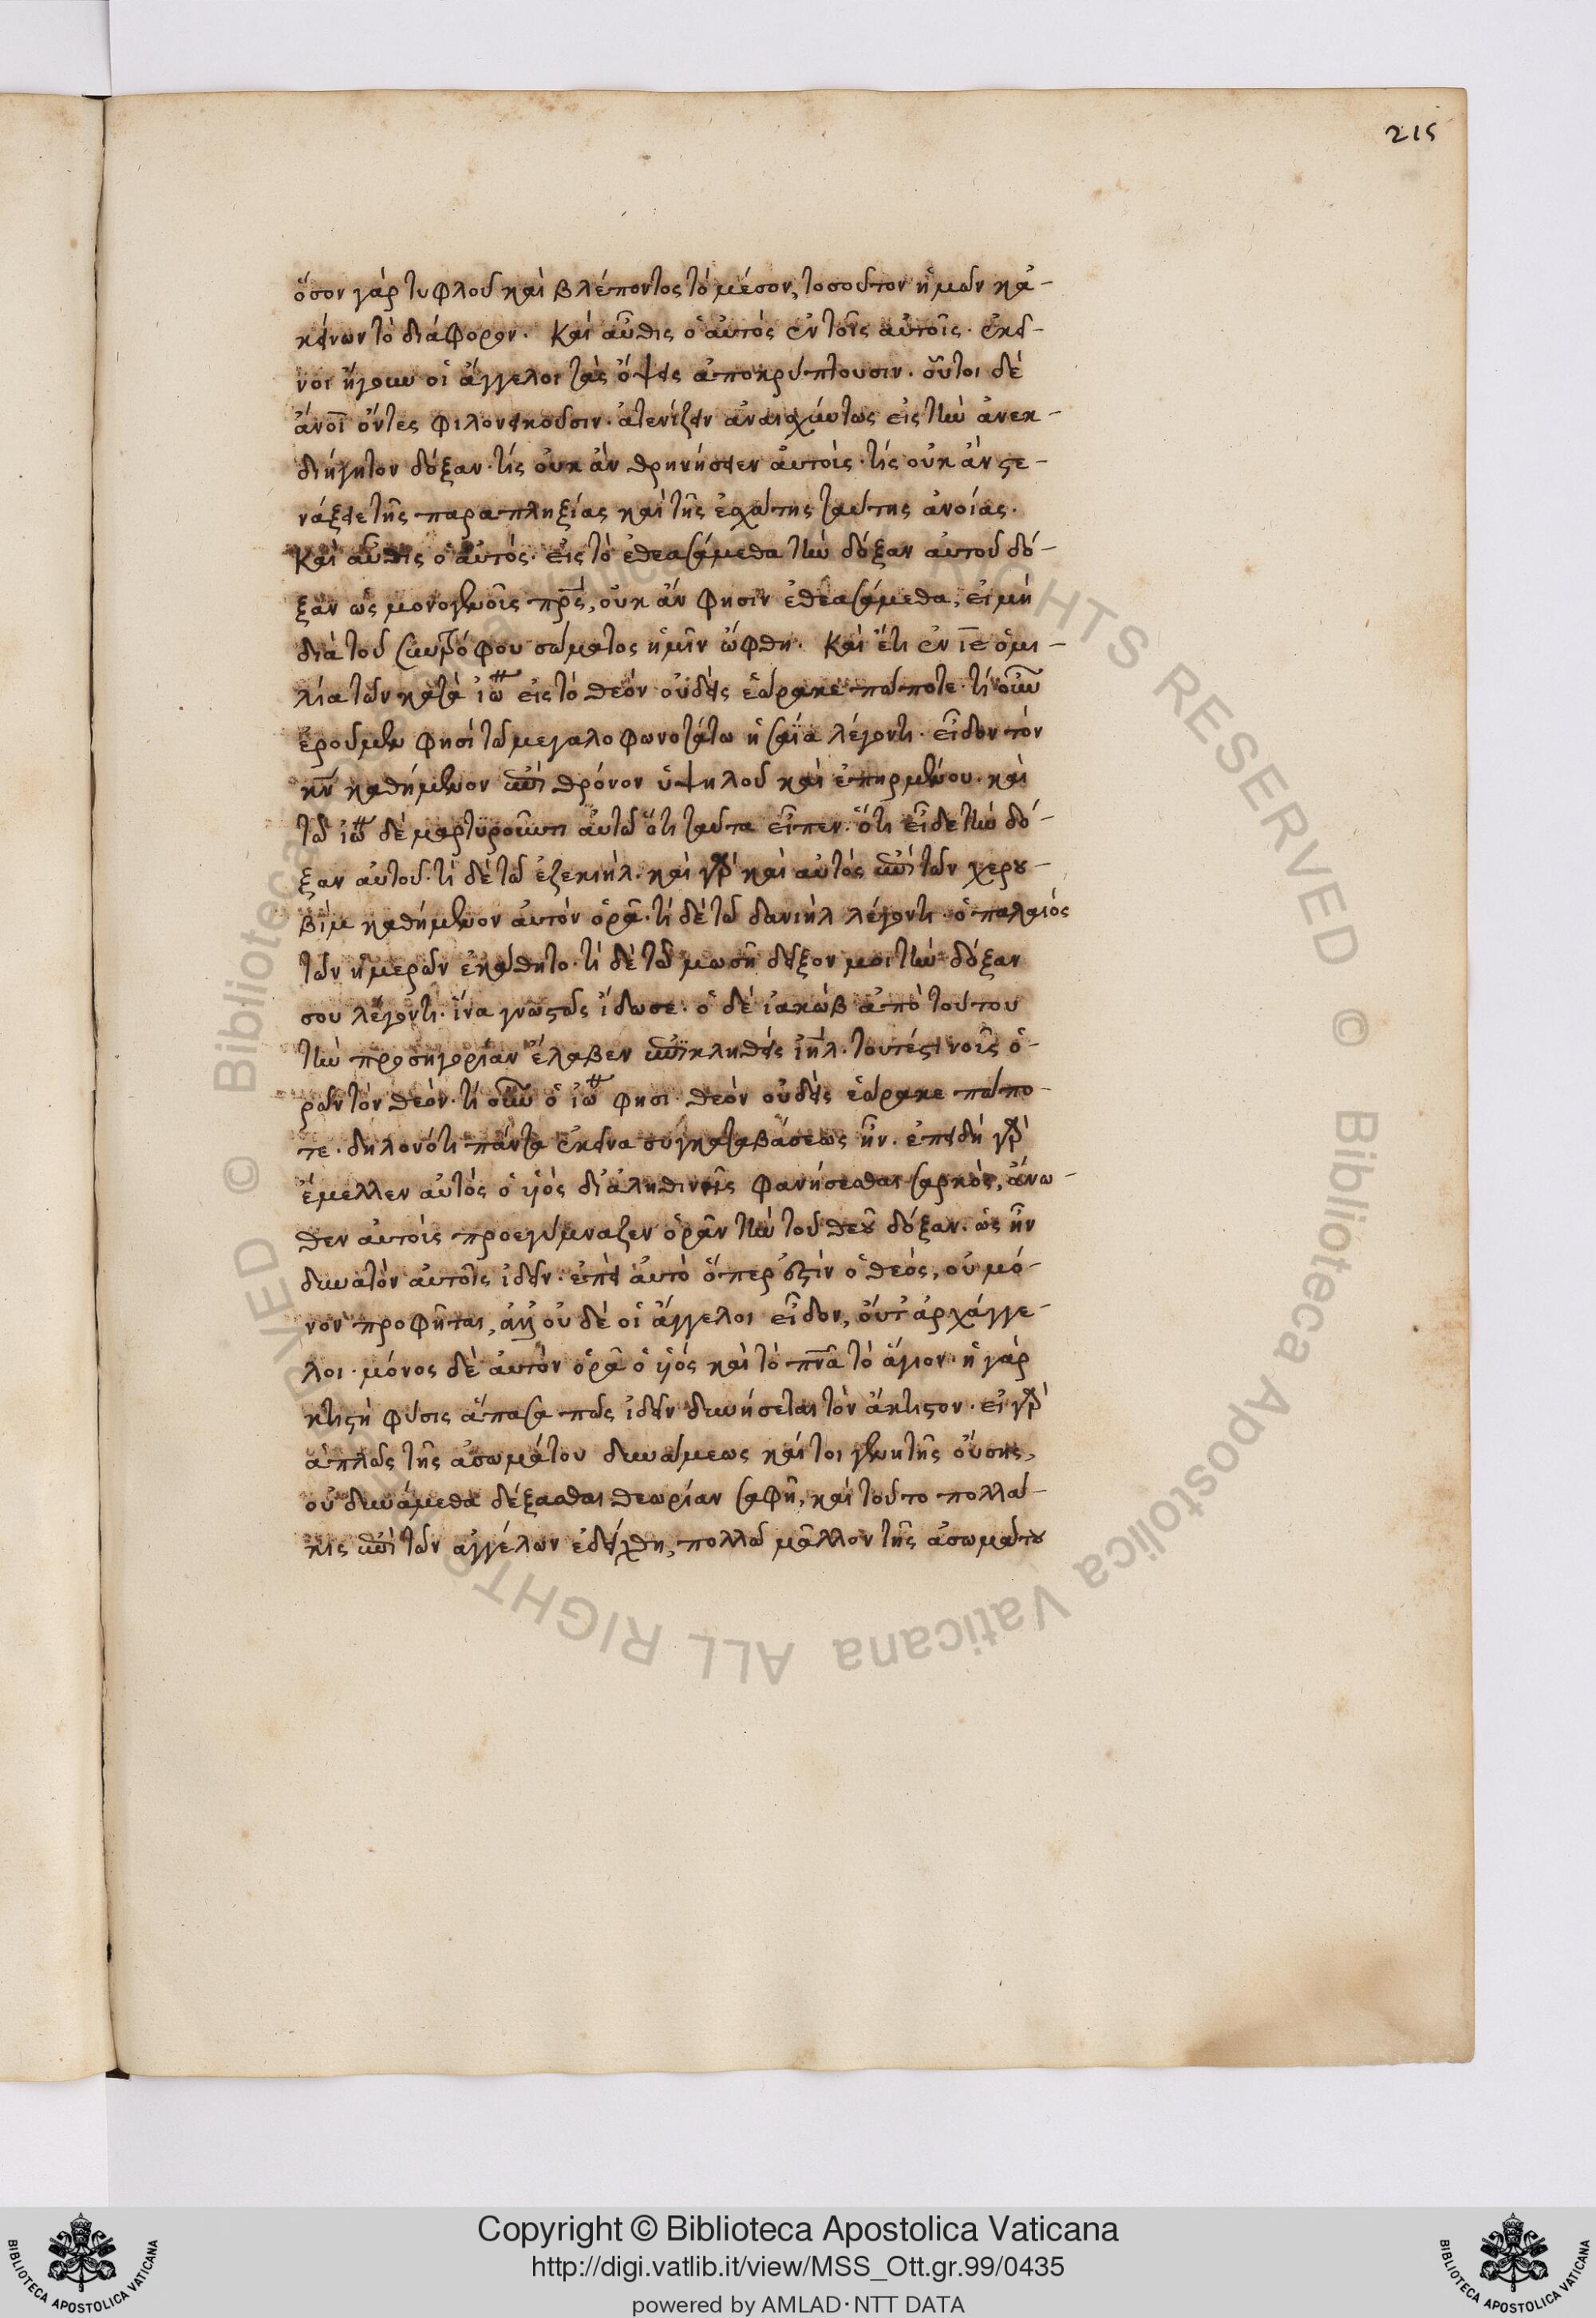 215
ὅσον γὰρ τυφλοῦ καὶ βλέποντος τὸ μέσον, τοσοῦτον ἡμῶν κἀ-
κείνων τὸ διάφορον. Καὶ αὖθις ὁ αὐτὸς ἐν τοῖς αὐτοῖς. ἐκεῖ-
νοι ἤγουν οἱ ἄγγελοι τὰς ὄψεις ἀποκρύπτουσιν. οὗτοι δὲ
ἄνοι ὄντες φιλονεικοῦσιν. ἀτενίζειν ἀναισχύντως εἰς τὴν ἀνεκ-
διήγητον δόξαν. τίς οὐκ ἂν θρηνήσειεν αὐτοὺς. τίς οὐκ ἂν στε-
νάξειε τῆς παραπληξίας καὶ τῆς ἐσχάτης ταύτης ἀνοίας.
Καὶ αὖθις ὁ αὐτός. εἰς τὸ ἐθεασάμεθα τὴν δόξαν αὐτοῦ δό-
ξαν ὡς μονογενοῦς πρς, οὐκ ἂν φησιν ἐθεασάμεθα, εἰ μὴ
διὰ τοῦ συντρόφου σώματος ἡμῖν ὤφθη. Καὶ ἔτι ἐν ιε ὁμι-
λία τῶν κατὰ ἰω εἰς τὸ θεὸν οὐδεὶς ἑώρακε πώποτε. τί οὖν
ἐροῦμεν φησὶ τῶ μεγαλοφωνοτάτω ἡσαΐα λέγοντι. εἶδον τὸν
κν καθήμενον ἐπὶ θρόνου ὑψηλοῦ καὶ ἐπηρμένου. καὶ
τῶ ἰω δὲ μαρτυροῦντι αὐτῶ ὅτι ταῦτα εἶπεν. ὅτι εἶδε τὴν δό-
ξαν αὐτοῦ. τί δὲ τῶ ἐζεκιήλ. καὶ γὰρ καὶ αὐτὸς ἐπὶ τῶν χερου-
βὶμ καθήμενον αὐτὸν ὁρᾶ. τί δὲ τῶ δανιὴλ λέγοντι. ὁ παλαιὸς
τῶν ἡμερῶν ἐκάθητο. τί δὲ τῶ μωσῆ δεῖξον μοι τὴν δόξαν
σου λέγοντι. ἵνα γνωστῶς ἴδω σε. ὁ δὲ ἰακὼβ ἀπὸ τούτου
τὴν προσηγορίαν ἔλαβεν ἐπικληθεὶς ἰηλ. τουτέστι νοῦς ὁ-
ρῶν τὸν θεόν. τί οὖν ὁ ἰω φησι. θεὸν οὐδεὶς ἑώρακε πώπο-
τε. δηλονότι πάντα ἐκεῖνα συγκαταβάσεως ἦν. ἐπειδὴ γὰρ
ἔμελλεν αὐτὸς ὁ υἱὸς δι ἀληθινῆς φανήσεσθαι σαρκὸς, ἄνω-
θεν αὐτοὺς προεγύμναζεν ὁρᾶν τὴν τοῦ θεοῦ δόξαν. ὡς ἦν
δυνατὸν αὐτοῖς ἰδεῖν. ἐπεὶ αὐτὸ ὅπερ ἐστὶν ὁ θεὸς, οὐ μό-
νον προφῆται, ἀλλ οὐδὲ οἱ ἄγγελοι εἶδον, οὔτ ἀρχάγγε-
λοι. μόνος δὲ αὐτὸν ὁρᾶ ὁ υἱὸς καὶ τὸ πνα τὸ ἅγιον. ἡ γὰρ
κτιστὴ φύσις ἅπασα πῶς ἰδεῖν δυνήσεται τὸν ἄκτιστον. εἰ γὰρ
ἁπλῶς τῆς ἀσωμάτου δυνάμεως καίτοι γενητῆς οὔσης,
οὐ δυνάμεθα δέξασθαι θεωρίαν σαφῆ, καὶ τοῦτο πολλά-
κις ἐπὶ τῶν ἀγγέλων ἐδείχθη, πολλῶ μᾶλλον τῆς ἀσωμάτου
© Biblioteca Apostolica Vaticana ALL RIGHTS RESERVED © Biblioteca Apostolica Vaticana ALL RIGHTS RESERVED
BIBLIOTECA APOSTOLICA VATICANA
Copyright © Biblioteca Apostolica Vaticana
http://digi.vatlib.it/view/MSS_Ott.gr.99/0435
powered by AMLAD·NTT DATA
BIBLIOTECA APOSTOLICA VATICANA